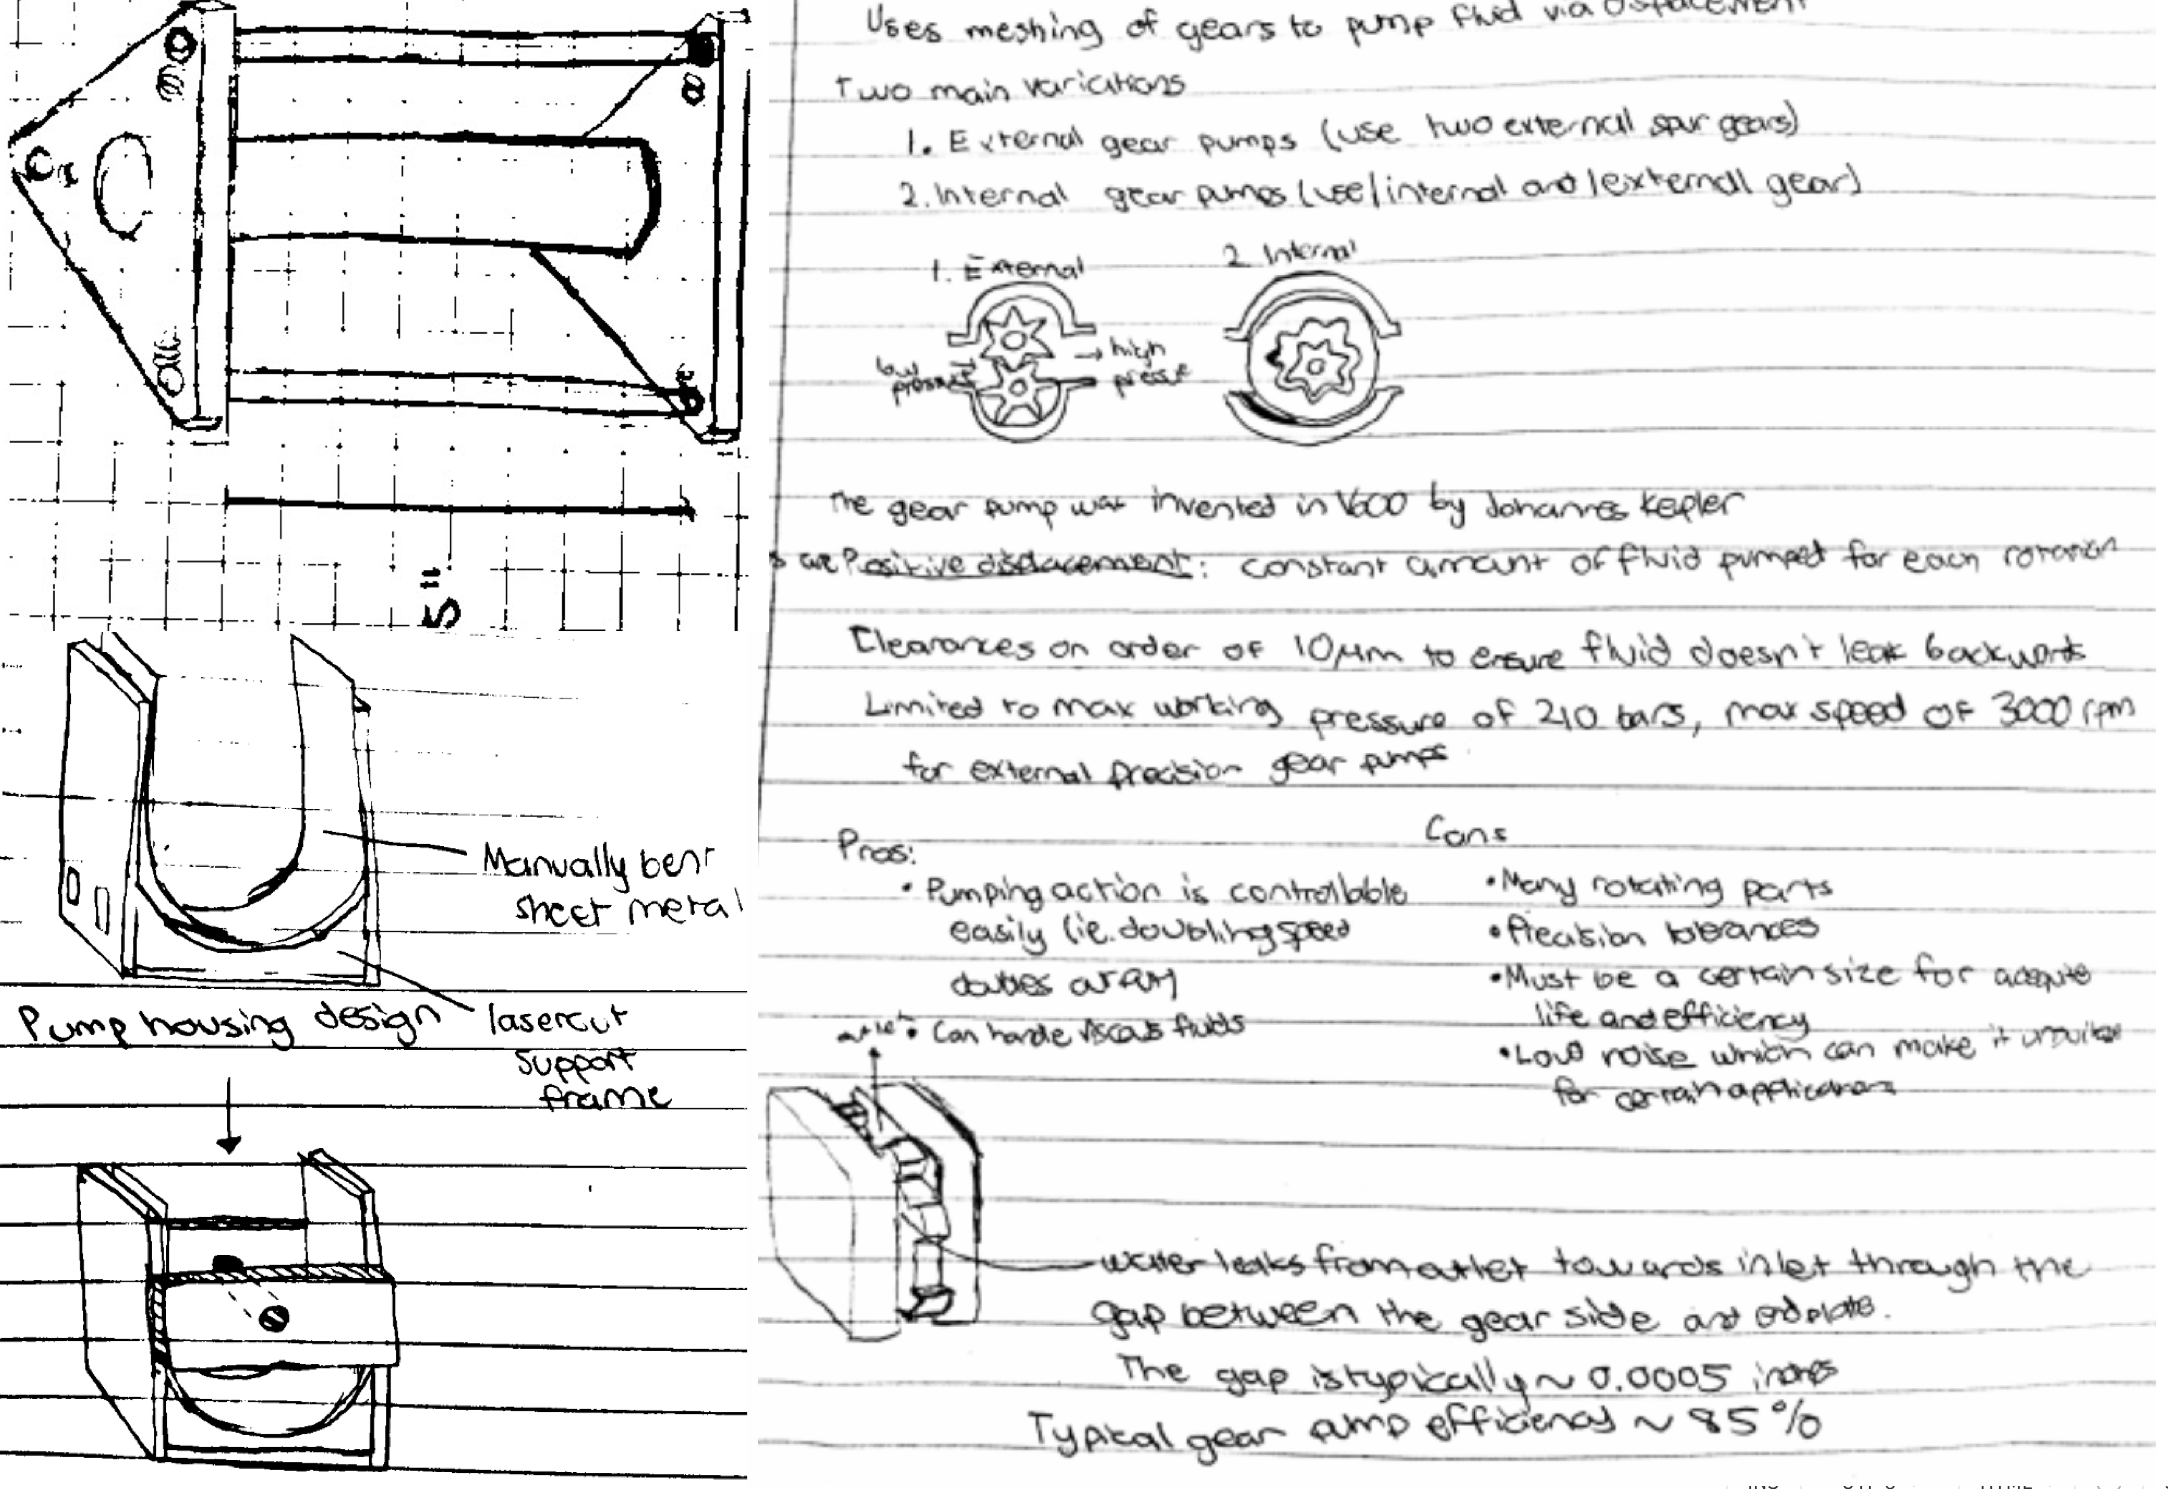 5"
Manually bent
sheet metal
Pump housing design
lasercut
support
frame
Uses meshing of gears to pump fluid via displacement
Two main variations
1. External gear pumps (use two external spur gears)
2. Internal gear pumps (use 1 internal and 1 external gear)
1. External
2 Internal
low
high
The gear pump was invented in 1600 by Johannes Kepler
are Positive displacement: constant amount of fluid pumped for each rotation
Clearances on order of 10µm to ensure fluid doesn't leak backwards
Limited to max working pressure of 210 bars, max speed of 3000 rpm
for external precision gear pumps
Pros:
• Pumping action is controllable
easily (ie. doubling speed
doubles
outlet • Can handle viscous fluids
Cans
• Many rotating parts
• Precision tolerances
• Must be a certain size for
life and efficiency
• Loud noise which can make it
for certain applications
water leaks from outlet towards inlet through the
gap between the gear side and endplate.
The gap is typically ~ 0.0005 inches
Typical gear pump efficiency ~ 85%